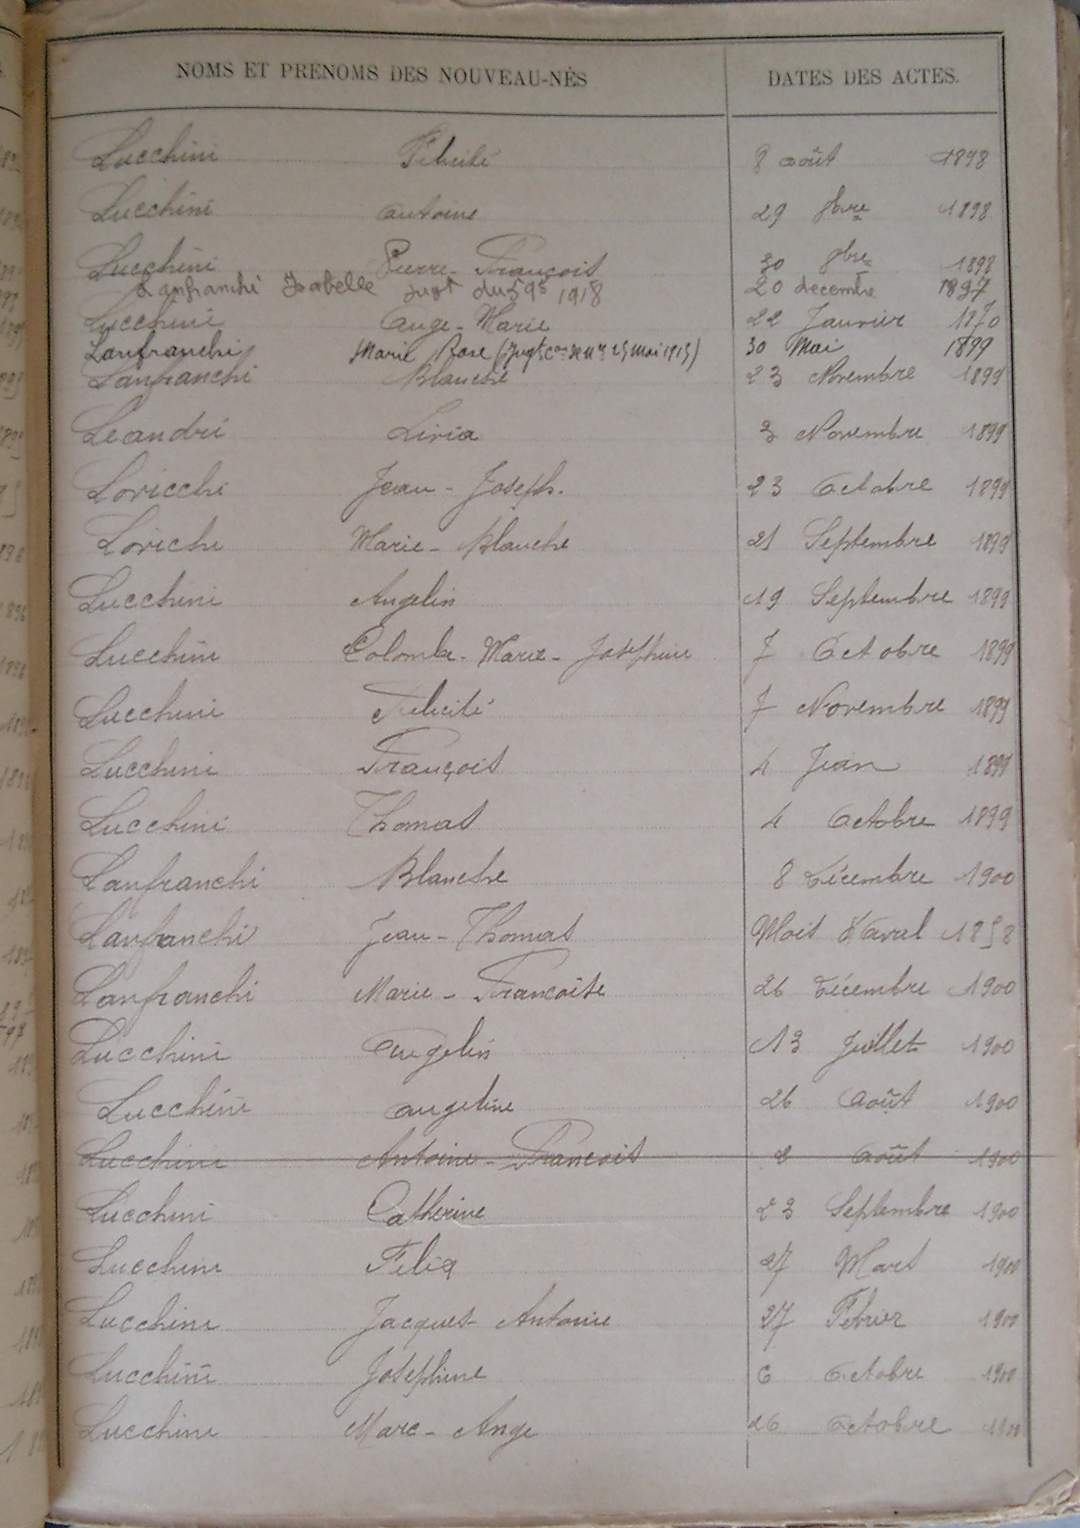 NOMS ET PRENOMS DES NOUVEAU-NÉS DATES DES ACTES.
Lucchini Félicité 8 août 1898
Lucchini antoine 29 9bre 1898
Lucchini Pierre-François 30 9bre 1898
Lanfranchi Isabelle jugt du 1918 20 decembre 1897
Lucchini Ange-Marie 22 Janvier 1870
Lanfranchi Marie Rose (Jugt 25 mai 1915) 30 Mai 1899
Lanfranchi Blanche 23 Novembre 1899
Leandri Livia 3 Novembre 1899
Loricchi Jean-Joseph. 23 Octobre 1899
Lorichi Marie-Blanche 21 Septembre 1899
Lucchini Angelin 19 Septembre 1899
Lucchini Colomba-Marie-Joséphine 7 Octobre 1899
Lucchini Félicité 7 Novembre 1899
Lucchini François 4 Juin 1899
Lucchini Thomas 4 Octobre 1899
Lanfranchi Blanche 8 Décembre 1900
Lanfranchi Jean-Thomas Mois d'Avril 1858
Lanfranchi Marie-Francoise 26 Décembre 1900
Lucchini angelin 13 Juillet 1900
Lucchini angeline 26 août 1900
Lucchini Antoine-Francois 8 août 1900
Lucchini Catherine 23 Septembre 1900
Lucchini Félix 27 Mars 1900
Lucchini Jacques Antoine 27 Février 1900
Lucchini Joséphine 6 Octobre 1900
Lucchini Marc-Ange 26 Octobre 1900